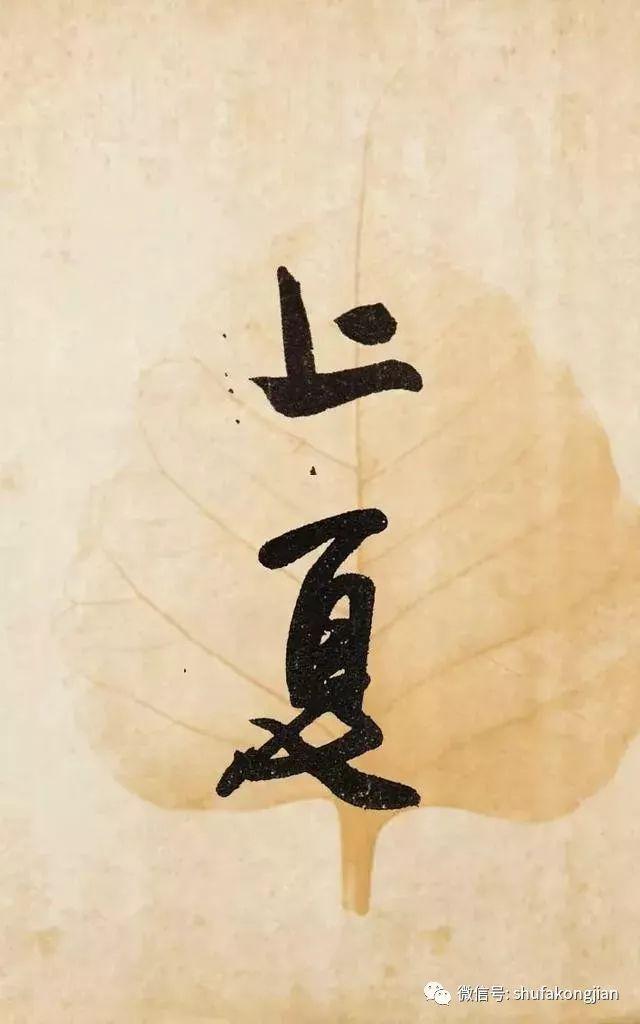 上
夏
微信号: shufakongjian